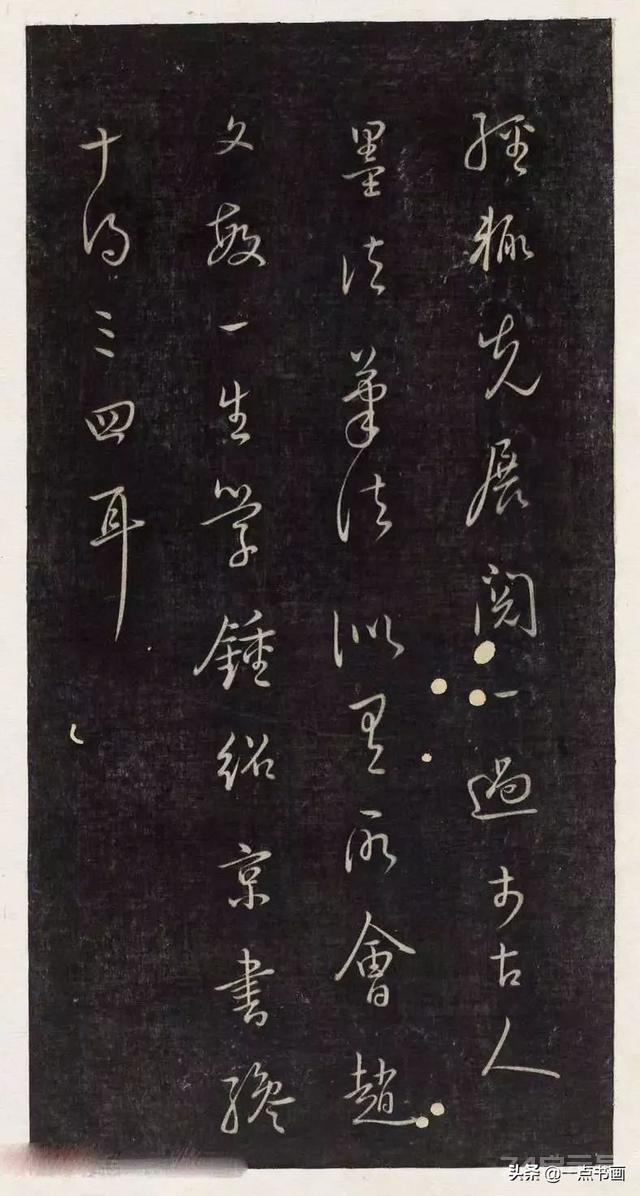 經輒先展閱一過於古人
墨法筆法似有所會趙
文敏一生學鍾紹京書纔
十得三四耳
头条 @一点书画